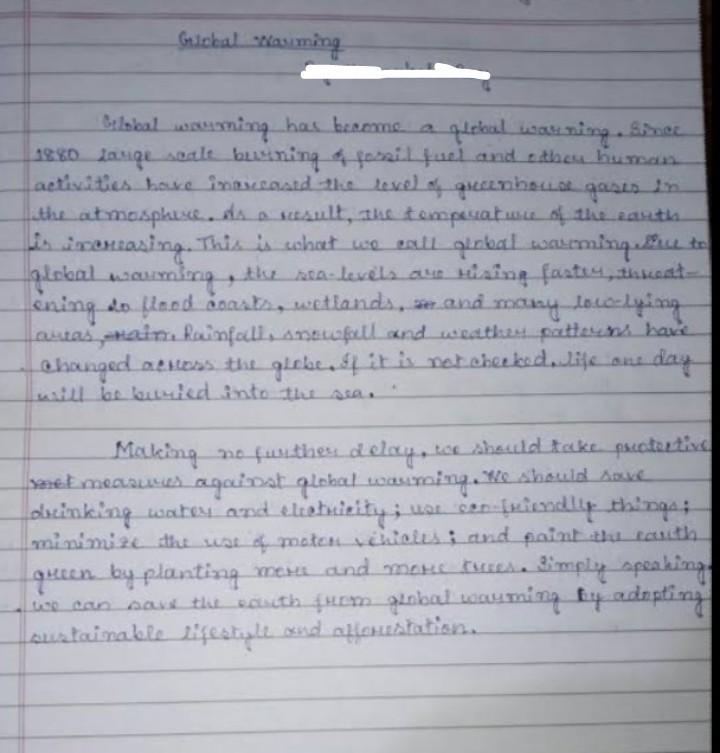 Global Warming
Global warming has become a global warning. Since
1880 large scale burning of fossil fuel and other human
activities have increased the level of greenhouse gases in
the atmosphere. As a result, the temperature of the earth
is increasing. This is what we call global warming. Due to
global warming, the sea-levels are rising faster, threat-
ening to flood coasts, wetlands, and many low-lying
areas, Rainfall, snowfall and weather patterns have
changed across the globe. If it is not checked, life one day
will be buried into the sea.
Making no further delay, we should take protective
measures against global warming. We should save
drinking water and electricity; use eco-friendly things;
minimize the use of motor vehicles; and paint the earth
green by planting more and more trees. Simply speaking
we can save the earth from global warming by adopting
sustainable lifestyle and afforestation.